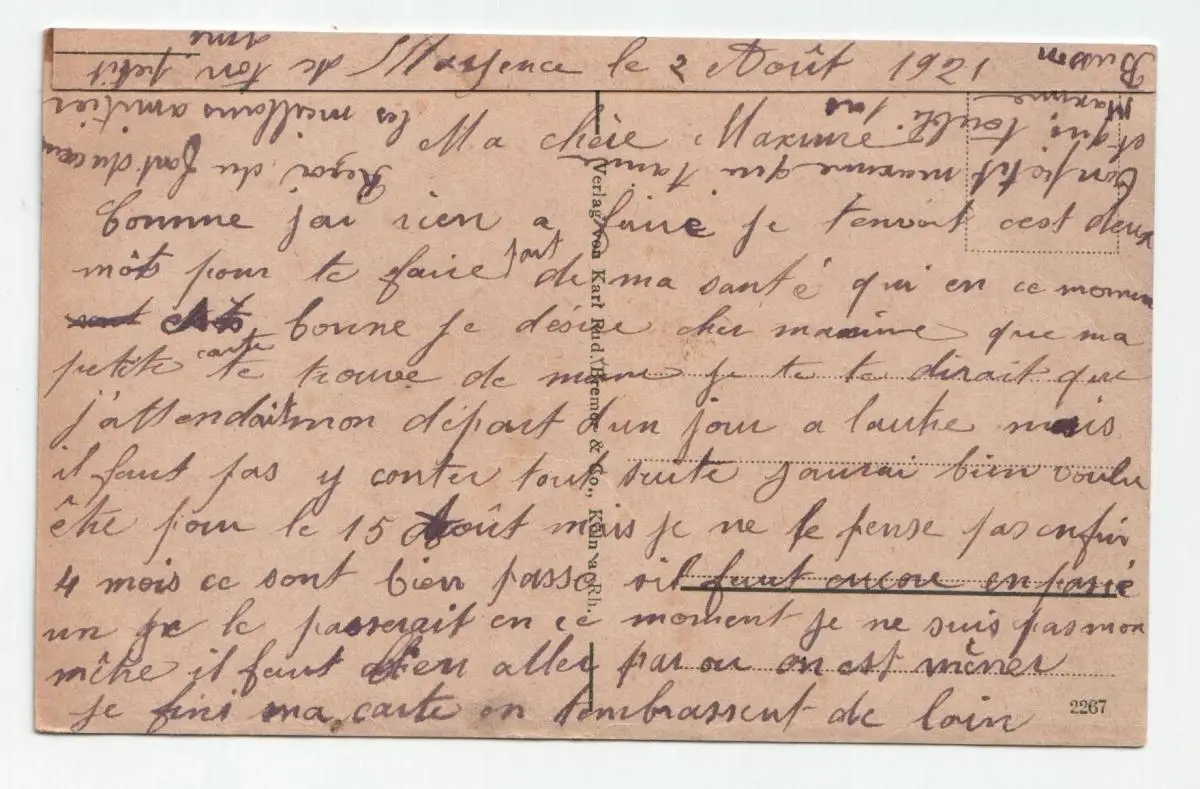 Mayence le 2 Août 1921
Ma chère Maxime
comme jai rien a faire je tenvoit cest deux
môts pour te faire part de ma santé qui en ce momen
bonne je désire cher maxime que ma
petite carte te trouve de meme je te te dirait que
j'attendait mon départ d'un jour a lautre mais
il faut pas y conter tout suite jaurai bien voulu
être pour le 15 Août mais je ne le pense pas enfin
4 mois ce sont bien passe sil faut encore en passé
un je le passerait en ce moment je ne suis pas mon
mêtre il faut bien aller par ou on est mêner
je fini ma carte en tembrassent de loin
ton petit maxime qui taime
et qui toubli pas
Maxime
Buson
Reçoi du font du cœur
les meillours amitier
de ton petit
ami
Verlag von Karl Rud. Bremer & Co., Köln a. Rh.
2267